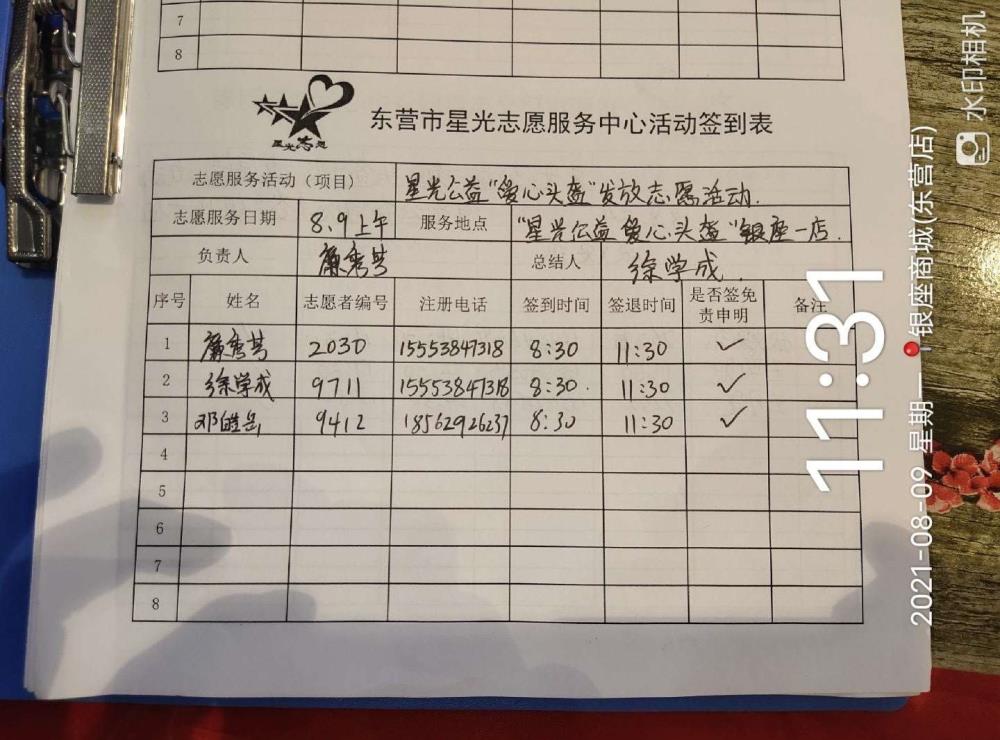 7
8
星光志愿
东营市星光志愿服务中心活动签到表
志愿服务活动（项目） 星光公益“爱心头盔”发放志愿活动.
志愿服务日期 8、9上午 服务地点 “星光公益 爱心头盔”银座一店.
负责人 廉秀芹 总结人 徐学成.
序号 姓名 志愿者编号 注册电话 签到时间 签退时间 是否签免责申明 备注
1 廉秀芹 2030 15553847318 8:30 11:30 ✓
2 徐学成 9711 15553847318 8:30. 11:30 ✓
3 邓皓岳 9412 18562926237 8:30 11:30 ✓
4
5
6
7
8
11:31
2021-08-09 星期一 银座商城(东营店)
水印相机